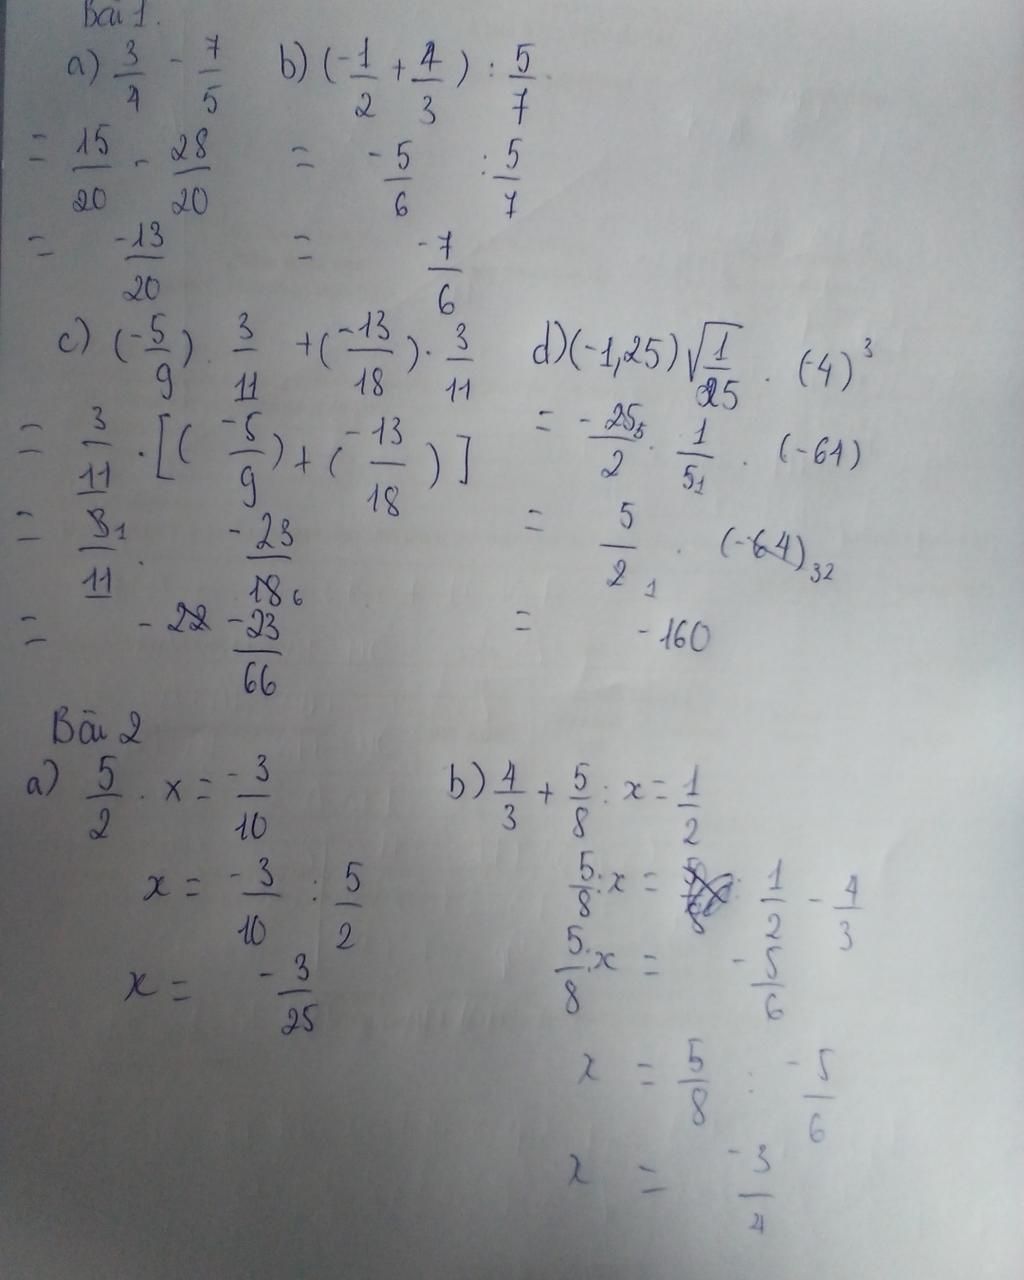 Bài 1.
a) 3/4 - 7/5
= 15/20 - 28/20
= -13/20
b) (-1/2 + 4/3) : 5/7
= -5/6 : 5/7
= -7/6
c) (-5/9) . 3/11 + (-13/18) . 3/11
= 3/11 . [(-5/9) + (-13/18)]
= 3 1/11 . -23/18 6
= -23/66
d) (-1,25) √1/25 . (-4)³
= -25 5/2 . 1/5 1 . (-64)
= 5/2 1 . (-64) 32
= -160
Bài 2
a) 5/2 . x = -3/10
x = -3/10 : 5/2
x = -3/25
b) 4/3 + 5/8 : x = 1/2
5/8 : x = 1/2 - 4/3
5/8 : x = -5/6
x = 5/8 : -5/6
x = -3/4